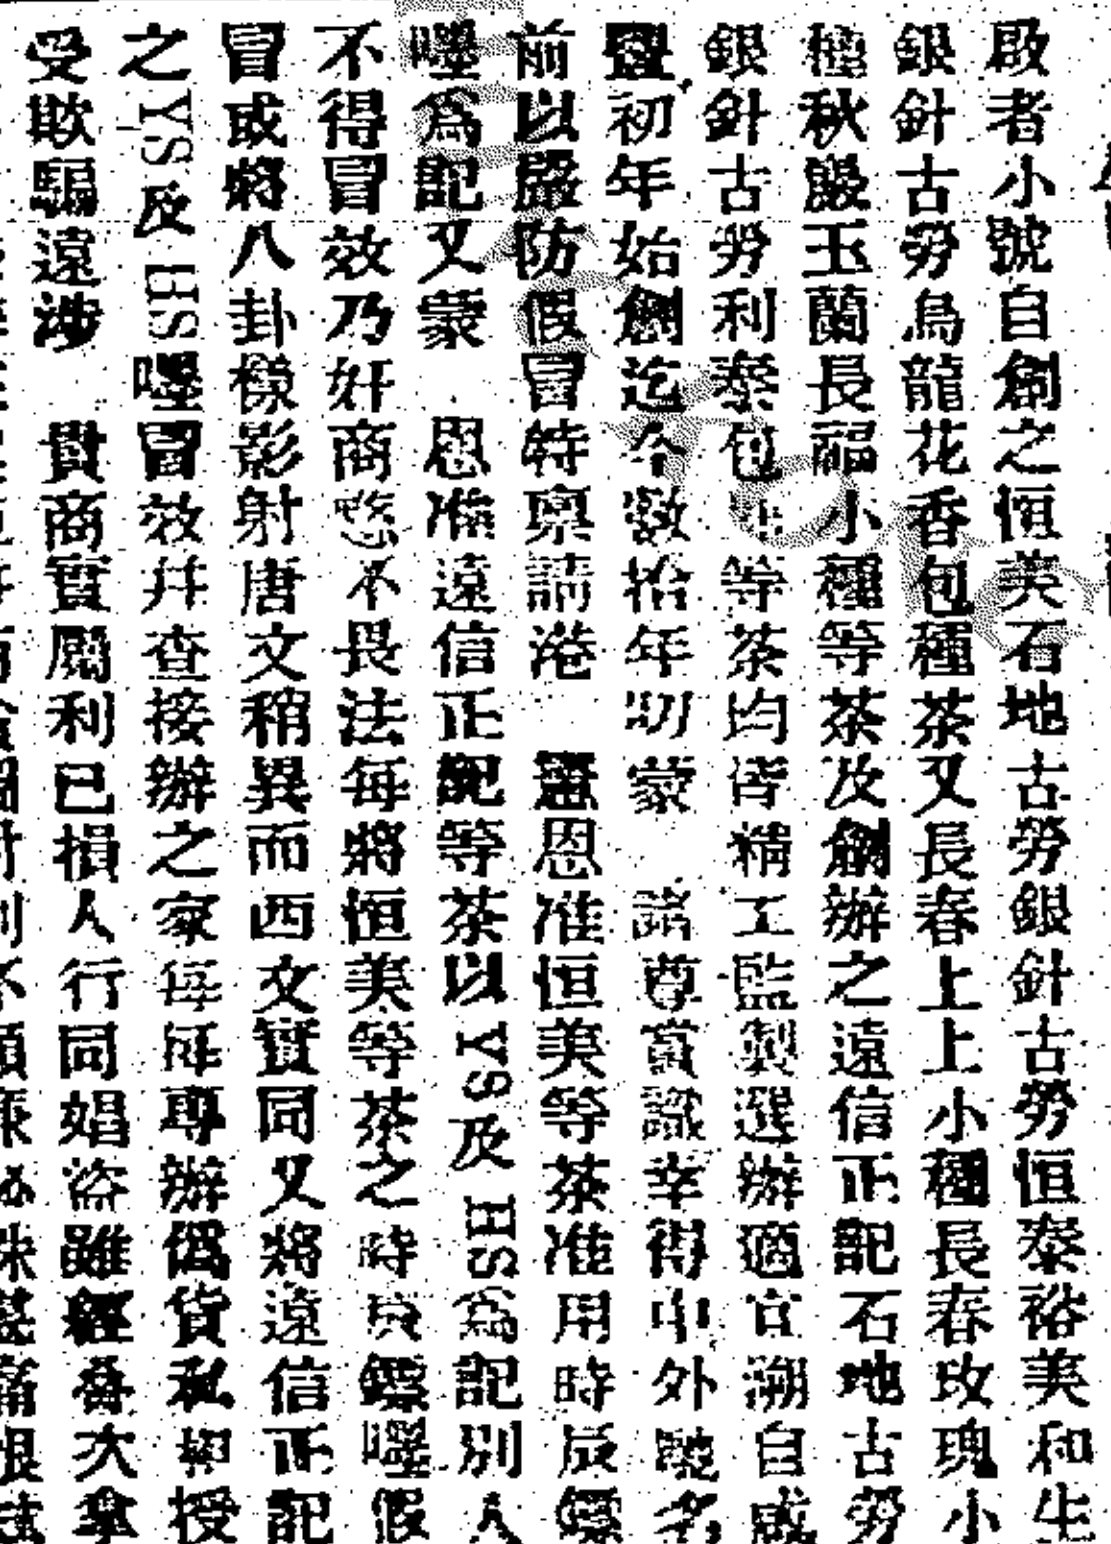 啟者小號自創之恒美石地古勞銀針古勞恒泰裕美和生
銀針古勞烏龍花香包種茶又長春上上小種長春玫瑰小
種秋嚴玉蘭長福小種等茶及創辦之遠信正記石地古勞
銀針古勞利泰包等茶均皆精工監製選辦適宜溯自咸
豐初年始創迄今數拾年叨蒙 諸尊賞識幸得中外馳名
前以嚴防假冒特禀請港 憲恩准恒美等茶准用時辰鏢
嘜為記又蒙 恩准遠信正記等茶以YS及HS為記別人
不得冒效乃奸商不畏法每將恒美等茶之時辰鏢嘜假
冒或將八卦樣影射唐文稍異而西文實同又將遠信正記
之YS及HS嘜冒效并查接辦之家每每專辦偽貨私相授
受欺騙遠涉 貴商實屬利已損人行同娼盜雖經叠次拿